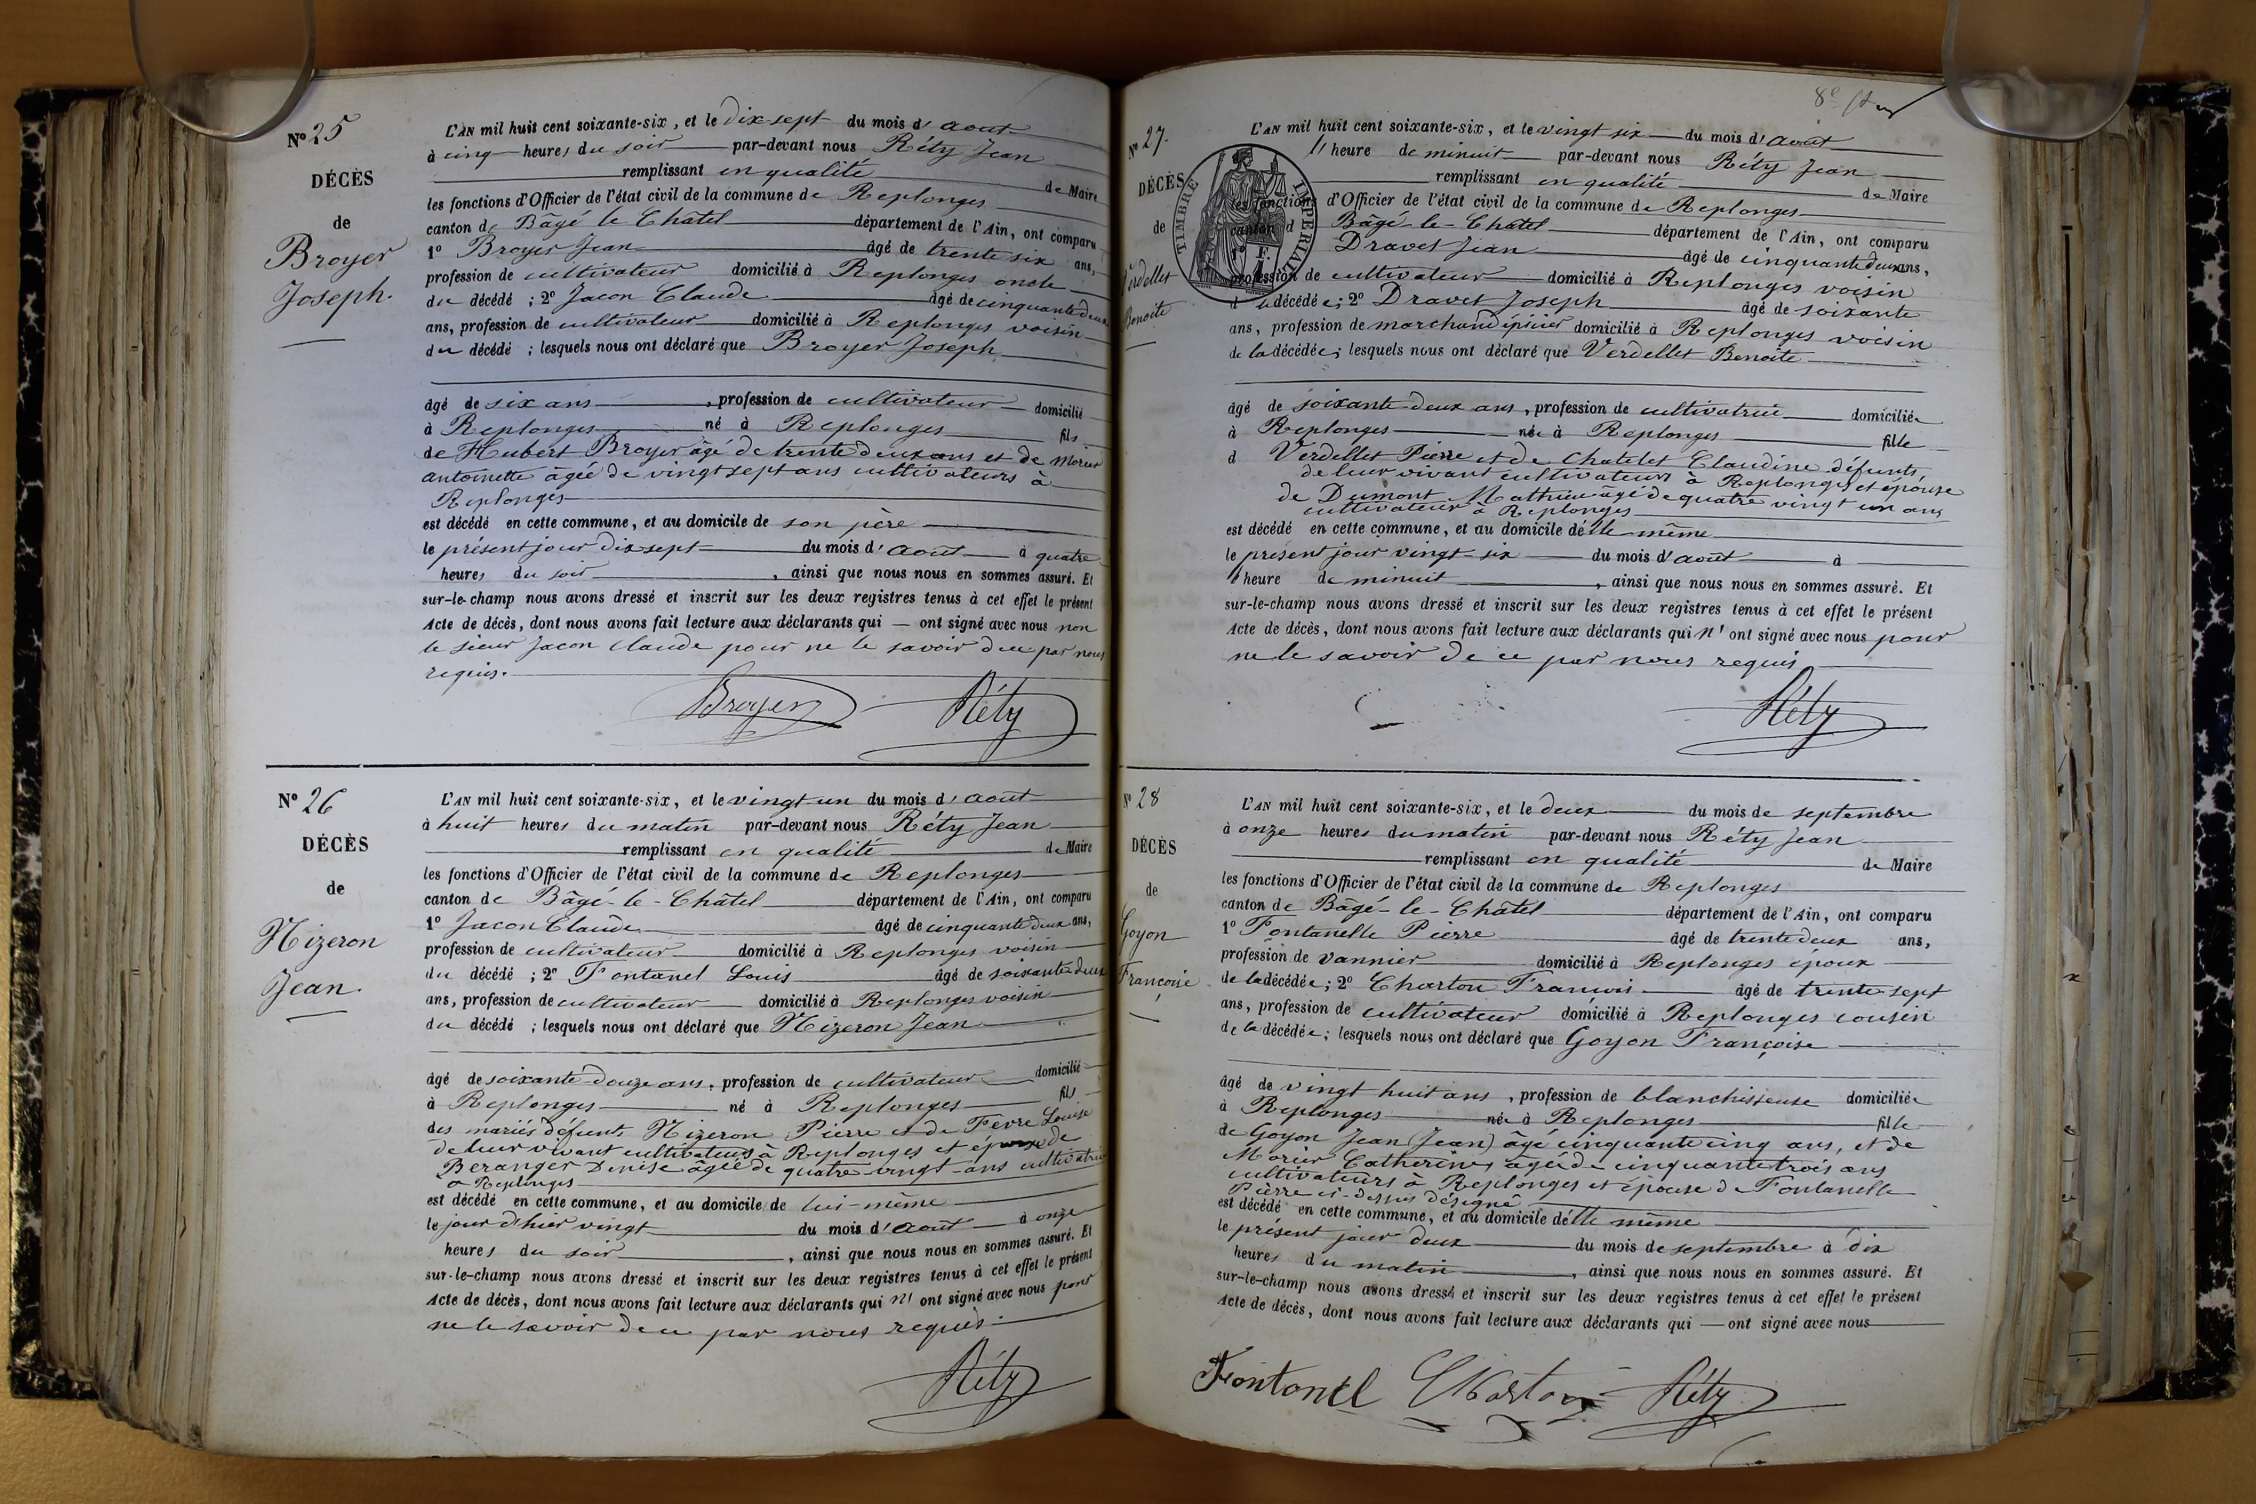 N° 25
DÉCÈS
de
Broyer
Joseph.
L'AN mil huit cent soixante-six, et le dix sept du mois d'août
à cinq heures du soir par-devant nous Réty Jean
remplissant en qualité de Maire
les fonctions d'Officier de l'état civil de la commune de Replonges
canton de Bâgé le Châtel département de l'Ain, ont comparu
1° Broyer Jean âgé de trente six ans,
profession de cultivateur domicilié à Replonges oncle
du décédé ; 2° Jacon Claude âgé de cinquante deux
ans, profession de cultivateur domicilié à Replonges voisin
du décédé ; lesquels nous ont déclaré que Broyer Joseph
âgé de six ans, profession de cultivateur domicilié
à Replonges né à Replonges fils
de Hubert Broyer âgé de trente deux ans et de Morier
antoinette âgée de vingt sept ans cultivateurs à
Replonges
est décédé en cette commune, et au domicile de son père
le présent jour dix sept du mois d'août à quatre
heures du soir, ainsi que nous nous en sommes assuré. Et
sur-le-champ nous avons dressé et inscrit sur les deux registres tenus à cet effet le présent
Acte de décès, dont nous avons fait lecture aux déclarants qui — ont signé avec nous non
le sieur Jacon Claude pour ne le savoir de ce par nous
requis.
Broyer Réty
N° 26
DÉCÈS
de
Nizeron
Jean.
L'AN mil huit cent soixante-six, et le vingt un du mois d'août
à huit heures du matin par-devant nous Réty Jean
remplissant en qualité de Maire
les fonctions d'Officier de l'état civil de la commune de Replonges
canton de Bâgé-le-Châtel département de l'Ain, ont comparu
1° Jacon Claude âgé de cinquante deux ans,
profession de cultivateur domicilié à Replonges voisin
du décédé ; 2° Fontanel Louis âgé de soixante deux
ans, profession de cultivateur domicilié à Replonges voisin
du décédé ; lesquels nous ont déclaré que Nizeron Jean
âgé de soixante-douze ans, profession de cultivateur domicilié
à Replonges né à Replonges fils
des mariés défunts Nizeron Pierre et de Fevre Louise
de leur vivant cultivateurs à Replonges et époux de
Beranger Denise âgée de quatre-vingt-ans cultivatrice
à Replonges
est décédé en cette commune, et au domicile de lui-même
le jour d'hier vingt du mois d'août à onze
heures du soir, ainsi que nous nous en sommes assuré. Et
sur-le-champ nous avons dressé et inscrit sur les deux registres tenus à cet effet le présent
Acte de décès, dont nous avons fait lecture aux déclarants qui n' ont signé avec nous pour
ne le savoir de ce par nous requis.
Réty
8e
N° 27.
DÉCÈS
de
Verdellet
Benoite
TIMBRE IMPERIAL
L'AN mil huit cent soixante-six, et le vingt six du mois d'août
1/ heure de minuit par-devant nous Réty Jean
remplissant en qualité de Maire
les fonctions d'Officier de l'état civil de la commune de Replonges
canton d Bâgé-le-Châtel département de l'Ain, ont comparu
1° F. Dravet Jean âgé de cinquante deux ans,
profession de cultivateur domicilié à Replonges voisin
d la décédée ; 2° Dravet Joseph âgé de soixante
ans, profession de marchand épicier domicilié à Replonges voisin
de la décédée ; lesquels nous ont déclaré que Verdellet Benoite
âgé de soixante-deux ans, profession de cultivatrice domiciliée
à Replonges née à Replonges fille
d Verdellet Pierre et de Chatelet Claudine défunts
de leur vivant cultivateurs à Replonges et épouse
de Dumont Mathieu âgé de quatre vingt un ans
cultivateur à Replonges
est décédé en cette commune, et au domicile d'elle même
le présent jour vingt-six du mois d'août à
1 heure de minuit, ainsi que nous nous en sommes assuré. Et
sur-le-champ nous avons dressé et inscrit sur les deux registres tenus à cet effet le présent
Acte de décès, dont nous avons fait lecture aux déclarants qui n' ont signé avec nous pour
ne le savoir de ce par nous requis
Réty
N° 28
DÉCÈS
de
Goyon
Françoise
L'AN mil huit cent soixante-six, et le deux du mois de septembre
à onze heures du matin par-devant nous Réty Jean
remplissant en qualité de Maire
les fonctions d'Officier de l'état civil de la commune de Replonges
canton de Bâgé-le-Châtel département de l'Ain, ont comparu
1° Fontanelle Pierre âgé de trente deux ans,
profession de vannier domicilié à Replonges époux
de la décédée ; 2° Charton Francois âgé de trente-sept
ans, profession de cultivateur domicilié à Replonges cousin
de la décédée ; lesquels nous ont déclaré que Goyon Françoise
âgé de vingt huit ans, profession de blanchisseuse domiciliée
à Replonges née à Replonges fille
de Goyon Jean (Jean) âgé cinquante cinq ans, et de
Morier Catherine âgée de cinquante trois ans
cultivateurs à Replonges et épouse de Fontanelle
Pierre ci-dessus désigné
est décédé en cette commune, et au domicile d'elle même
le présent jour deux du mois de septembre à dix
heures du matin, ainsi que nous nous en sommes assuré. Et
sur-le-champ nous avons dressé et inscrit sur les deux registres tenus à cet effet le présent
Acte de décès, dont nous avons fait lecture aux déclarants qui — ont signé avec nous
Fontanel Charton Réty